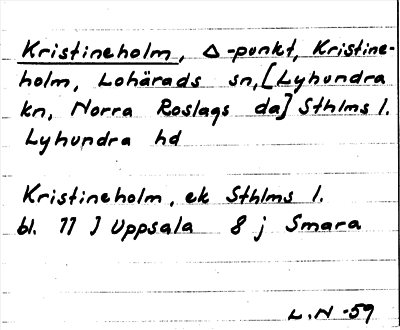 Kristineholm, Δ-punkt, Kristine-
holm, Lohärads sn, [Lyhundra
kn, Norra Roslags da] Sthlms l.
Lyhundra hd
Kristineholm, ek Sthlms l.
bl. 11 J Uppsala 8 j Smara
L.N -59